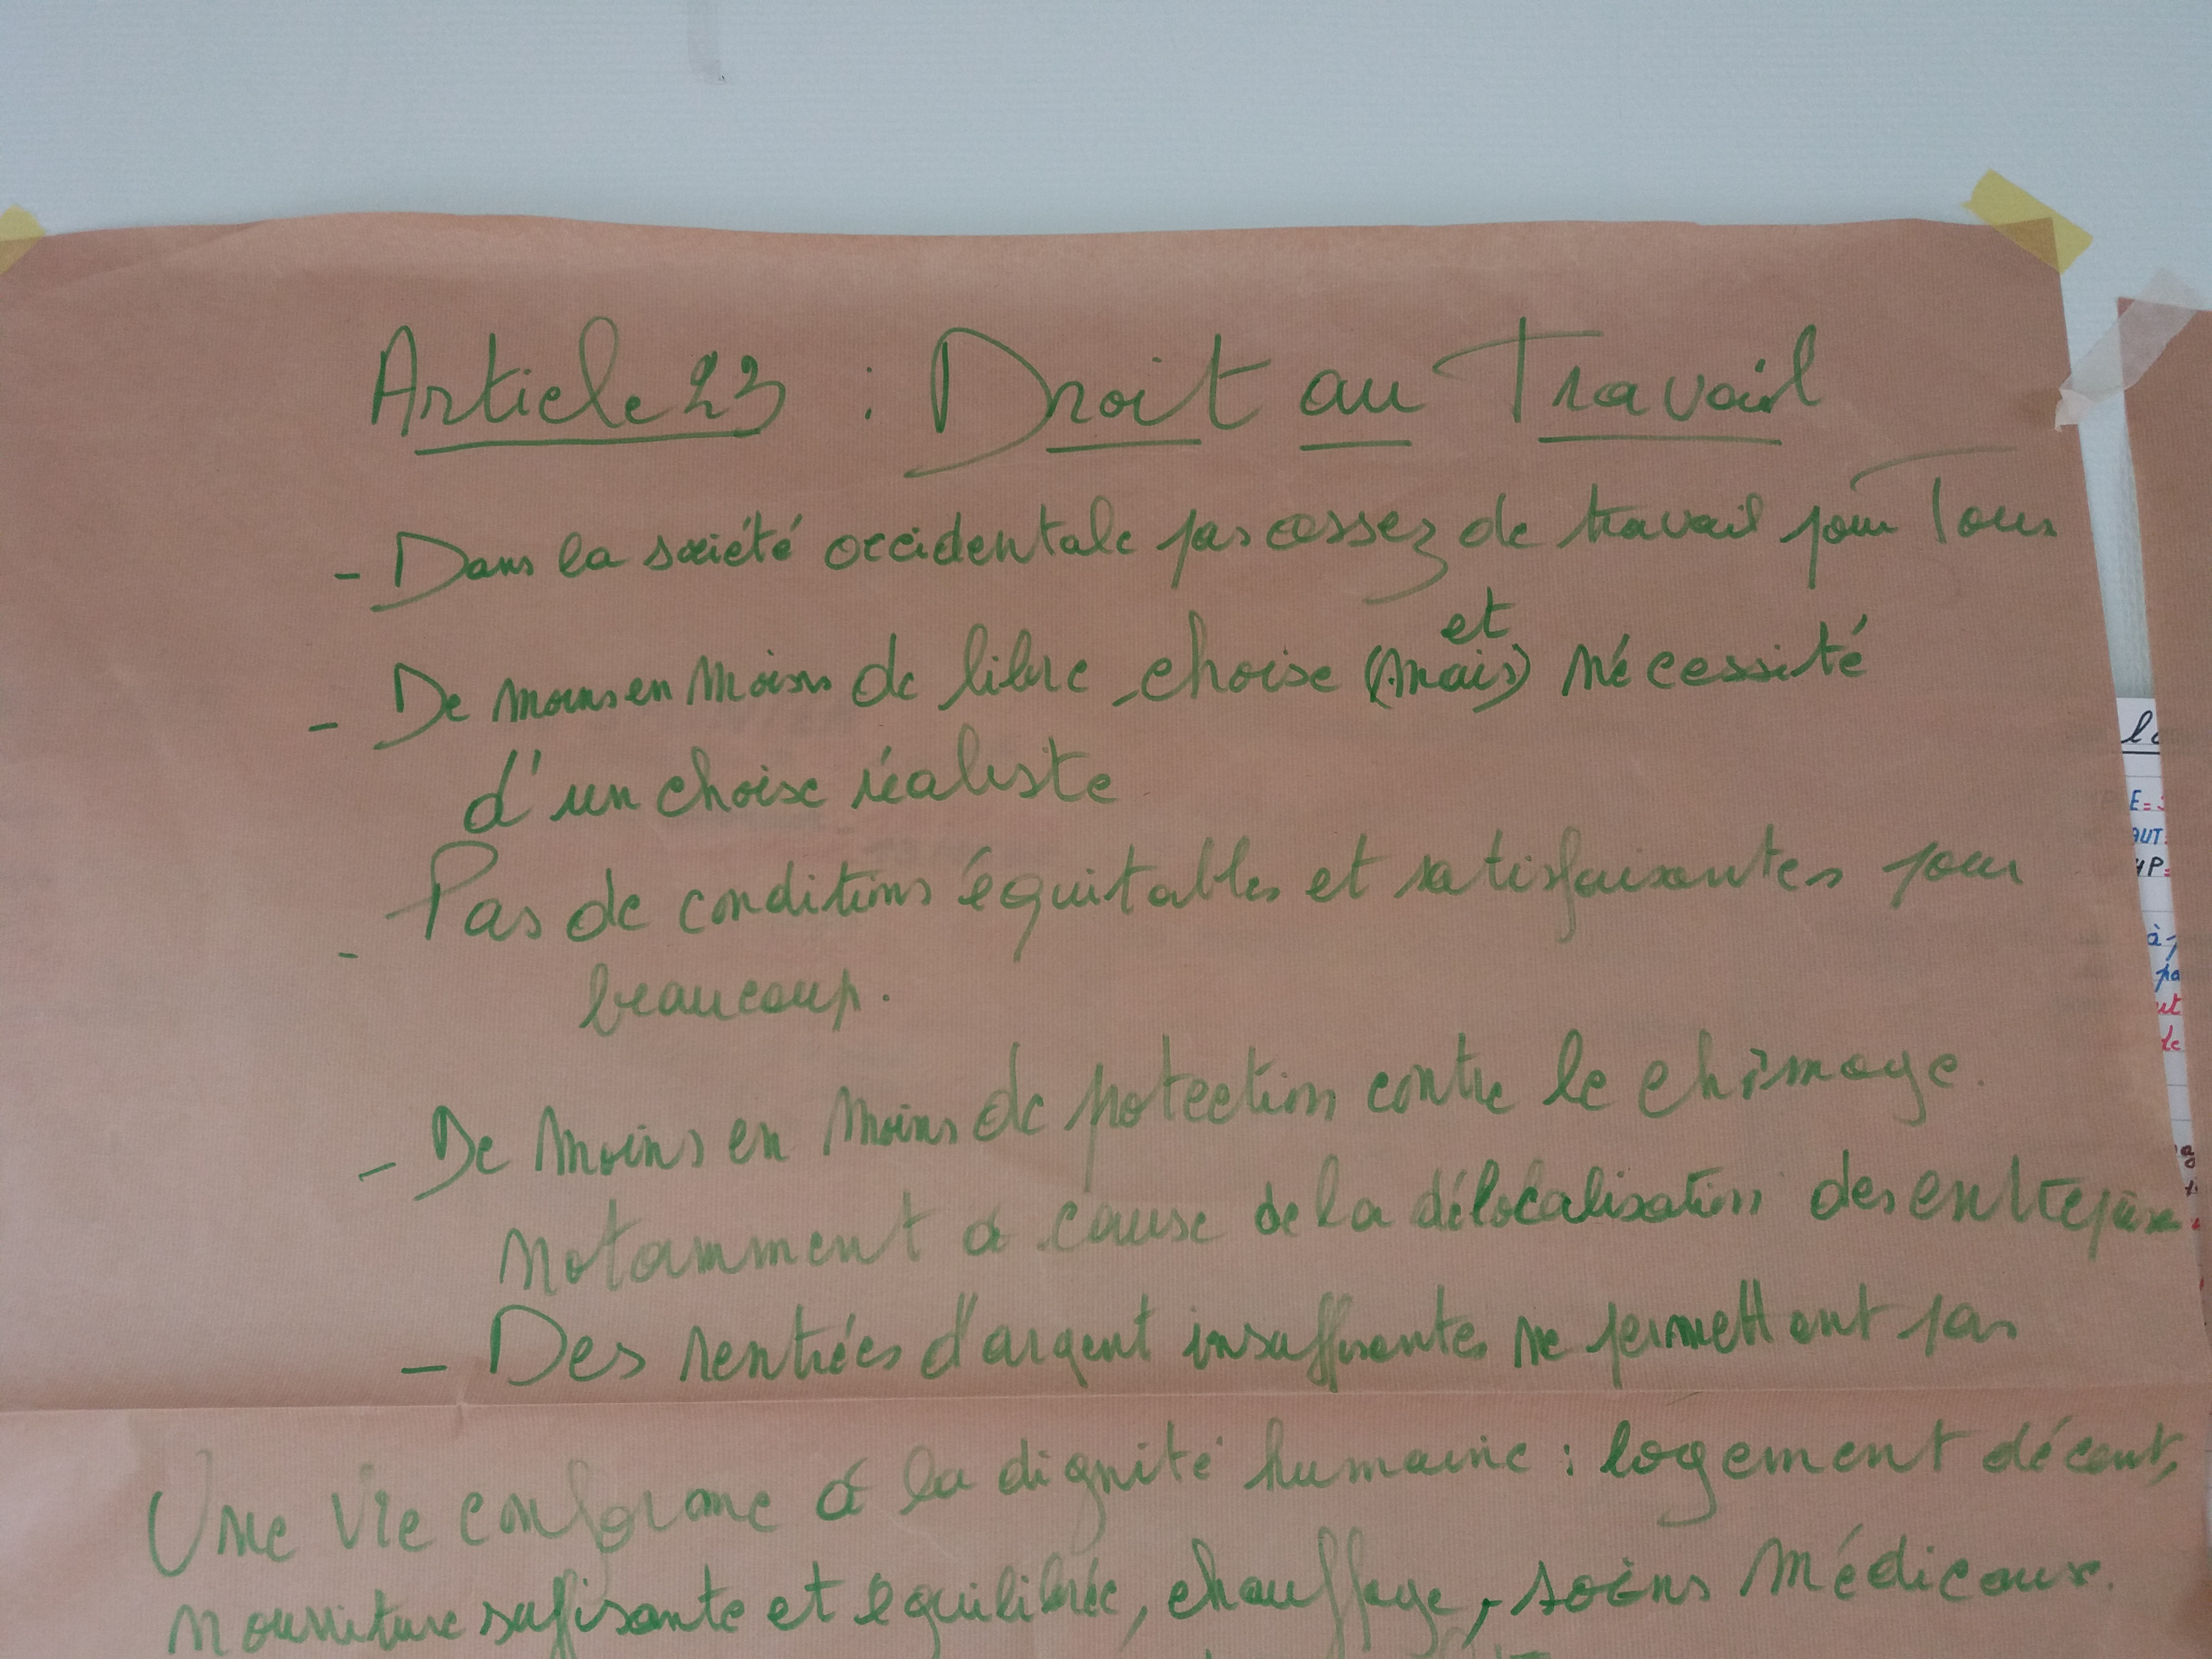 Article 23 : Droit au Travail
- Dans la société occidentale pas assez de travail pour Tous
- De moins en moins de libre choise (mais) et nécessité
d'un choise réaliste
- Pas de conditions équitables et satisfaisantes pour
beaucoup.
- De moins en moins de potection contre le chômage.
notamment à cause de la délocalisation des entreprise
- Des rentrées d'argent insuffisantes ne permettent pas
Une vie conforme à la dignité humaine : logement décent,
nourriture suffisante et équilibrée, chauffage, soins médicaux.
E=
AUT
HP=
à
pa
ut
de